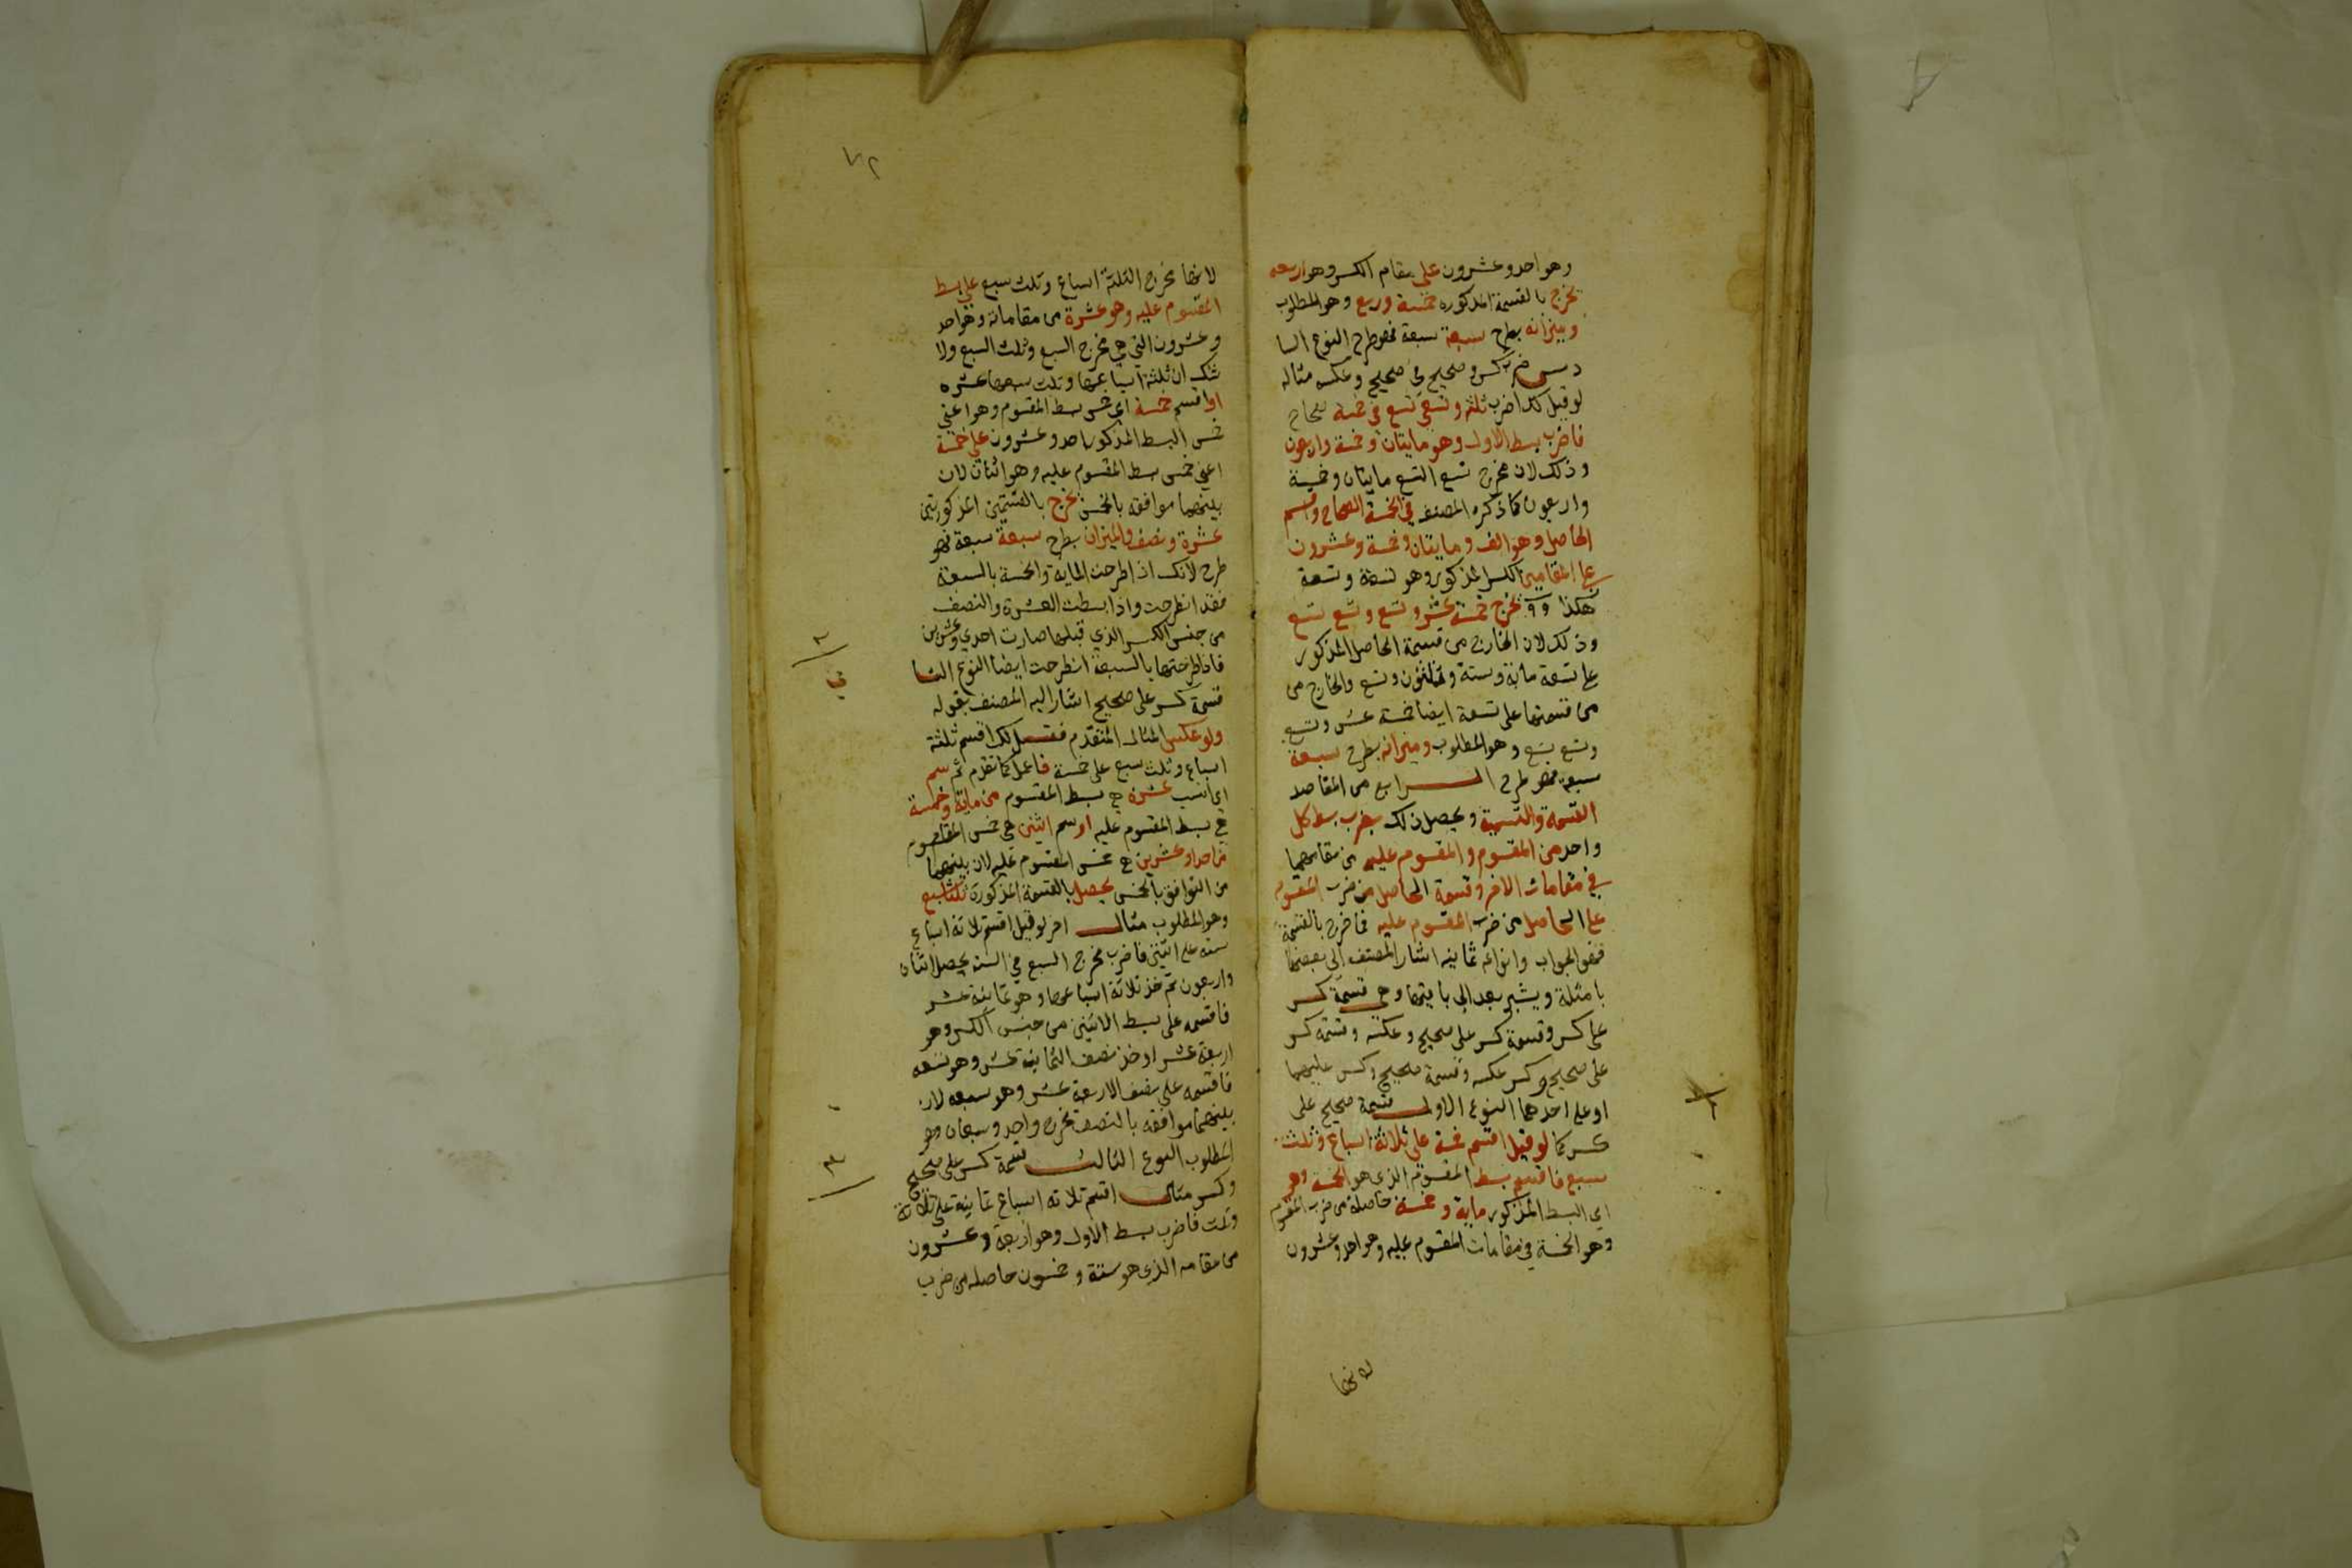 وهو احد وعشرون على مقام الكسر وهو اربعه
يخرج بالقسمة المذكوره خمسة وربع وهو المطلوب
وميزانه بطرح سبعة سبعة فهو طرح النوع السا
دس ضرب كسر وصحيح في صحيح وعكسه مثاله
لو قيل لك اضرب ثلثه وتسعي تسع في خمسة صحاح
فاضرب بسط الاول وهو مايتان وخمسة واربعون
وذلك لان مخرج تسع التسع مايتان وخمسة
واربعون كما ذكره المصنف في الخمسة الصحاح واقسم
الحاصل وهو الف ومايتان وخمسة وعشرون
على المقامين الكسر المذكور وهو تسعة وتسعة
هكذا ٩ ٩ يخرج خمسة عشر وتسع وتسع تسع
وذلك لان الخارج من قسمة الحاصل المذكور
على تسعة مائة وستة وثلثون وتسع والخارج من
من قسمتها على تسعة ايضا خمسة عشر وتسع
وتسع تسع وهو المطلوب وميزانه بطرح سبعة
سبعة فهو طرح الرابع من المقاصد
القسمة والتسمية ويحصل ذلك بضرب بسط كل
واحد من المقسوم والمقسوم عليه من مقامهما
في مقامات الاخر وقسمة الحاصل من ضرب المقسوم
على الحاصل من ضرب المقسوم عليه فما خرج بالقسمة
فهو الجواب وانواعه ثمانيه اشار المصنف الى بعضها
بامثلة ويشير بعد الى باقيها وهي قسمة كسر
على كسر وقسمة كسر على صحيح وعكسه وقسمة كسر
على صحيح وكسر عكسه وقسمة صحيح وكسر عليهما
او على احدهما النوع الاول قسمة صحيح على
كسر كما لو قيل اقسم خمسة على ثلاثة اسباع وثلث
سبع فاقسم بسط المقسوم الذي هو الخمسة وهو
اي البسط المذكور ماية وخمسة حاصلة من ضرب المقسوم
وهو الخمسة في مقامات المقسوم عليه وهو احد وعشرون
لانها
٧٢
لانها مخرج الثلثة اسباع وثلث سبع على بسط
المقسوم عليه وهو عشرة من مقاماته وهو احد
وعشرون التي هي مخرج السبع وثلث السبع ولا
شك ان ثلثة اسباعها وثلث سبعها عشره
او اقسم خمسة اي خمس بسط المقسوم وهو اعني
خمس البسط المذكور احد وعشرون على خمسة
اعني خمس بسط المقسوم عليه وهو اثنان لان
بينهما موافقه بالخمس يخرج بالقسمتين المذكورتين
عشرة ونصف والميزان بطرح سبعة سبعة فهو
طرح لانك اذا طرحت الماية والخمسة بالسبعة
فقد انطرحت واذا بسطت العشرة والنصف
من جنس الكسر الذي قبلها صارت احدي وعشرين
فاذا طرحتها بالسبعة انطرحت ايضا النوع الثا
ني
قسمة كسر على صحيح اشار اليه المصنف بقوله
ولو عكس المثال المتقدم فقيل لك اقسم ثلثة
اسباع وثلث سبع على خمسة فاعمل كما تقدم ثم سم
اي انسب عشرة هي بسط المقسوم من ماية وخمسة
هي بسط المقسوم عليه او سم اثنين هي خمس المقسوم
من احد وعشرين هي خمس المقسوم عليه لان بينهما
من التوافق بالخمس يحصل بالقسمة المذكورة ثلثا سبع
وهو المطلوب مثال اخر لو قيل اقسم ثلاثة اسباع
ستة على اثنين فاضرب مخرج السبع في الستة يحصل اثنان
واربعون ثم خذ ثلاثة اسباعها وهو ثمانية عشر
فاقسمه على بسط الاثنين من جنس الكسر وهو
اربعة عشر او خذ نصف الثمانية عشر وهو تسعه
فاقسمه على نصف الاربعة عشر وهو سبعه لان
بينهما موافقه بالنصف يخرج واحد وسبعان وهو
المطلوب النوع الثالث قسمة كسر على صحيح
وكسر مثاله اقسم ثلاثة اسباع ثمانية على ثلاثة
وثلث فاضرب بسط الاول وهو اربعة وعشرون
من مقامه الذي هو ستة وخمسون حاصله من ضرب